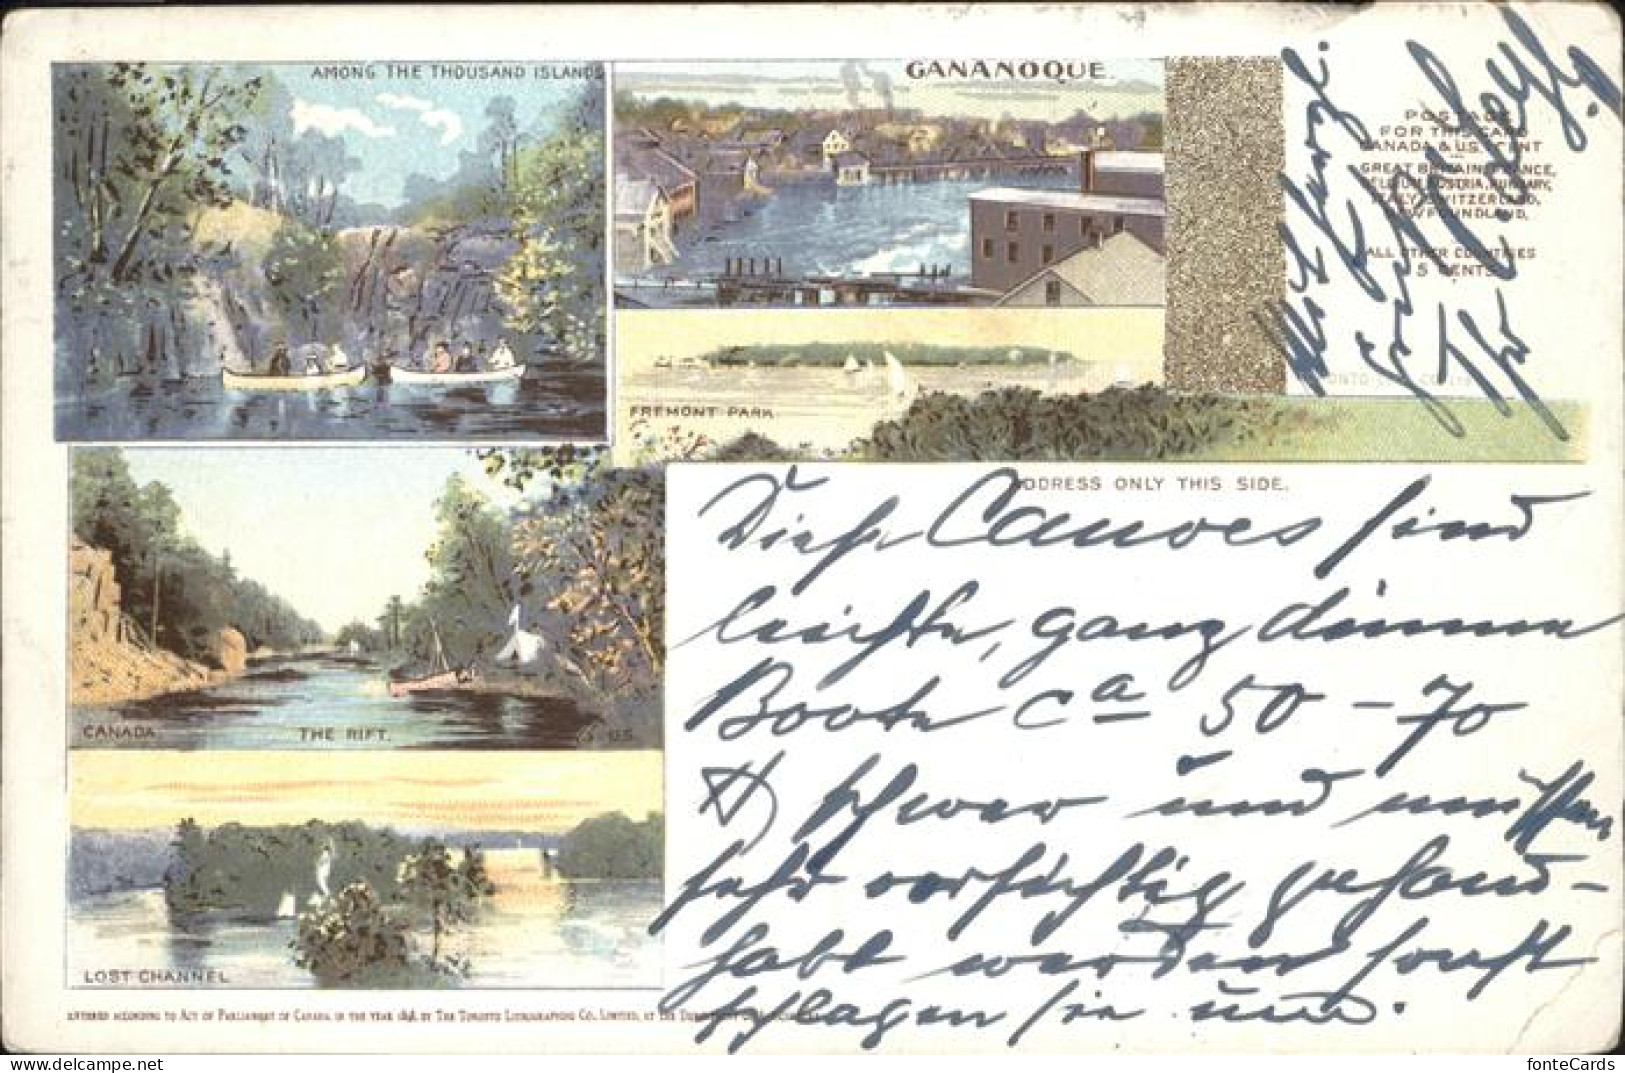 AMONG THE THOUSAND ISLANDS
GANANOQUE.
POSTAGE
FOR THIS CARD
CANADA & U.S. 1 CENT
GREAT BRITAIN, FRANCE,
BELGIUM, AUSTRIA, HUNGARY,
ITALY, SWITZERLAND,
NEWFOUNDLAND,
ALL OTHER COUNTRIES
5 CENTS
FREMONT PARK
ADDRESS ONLY THIS SIDE.
Diese Canoes sind
leichte, ganz dünne
Boote ca 50 - 70
℔ schwer und müssen
sehr vorsichtig gehand-
habt werden sonst
schlagen sie um.
CANADA. THE RIFT. U.S.
LOST CHANNEL
ENTERED ACCORDING TO ACT OF PARLIAMENT OF CANADA IN THE YEAR 1898 BY THE TORONTO LITHOGRAPHING CO., LIMITED, AT THE
fonteCards